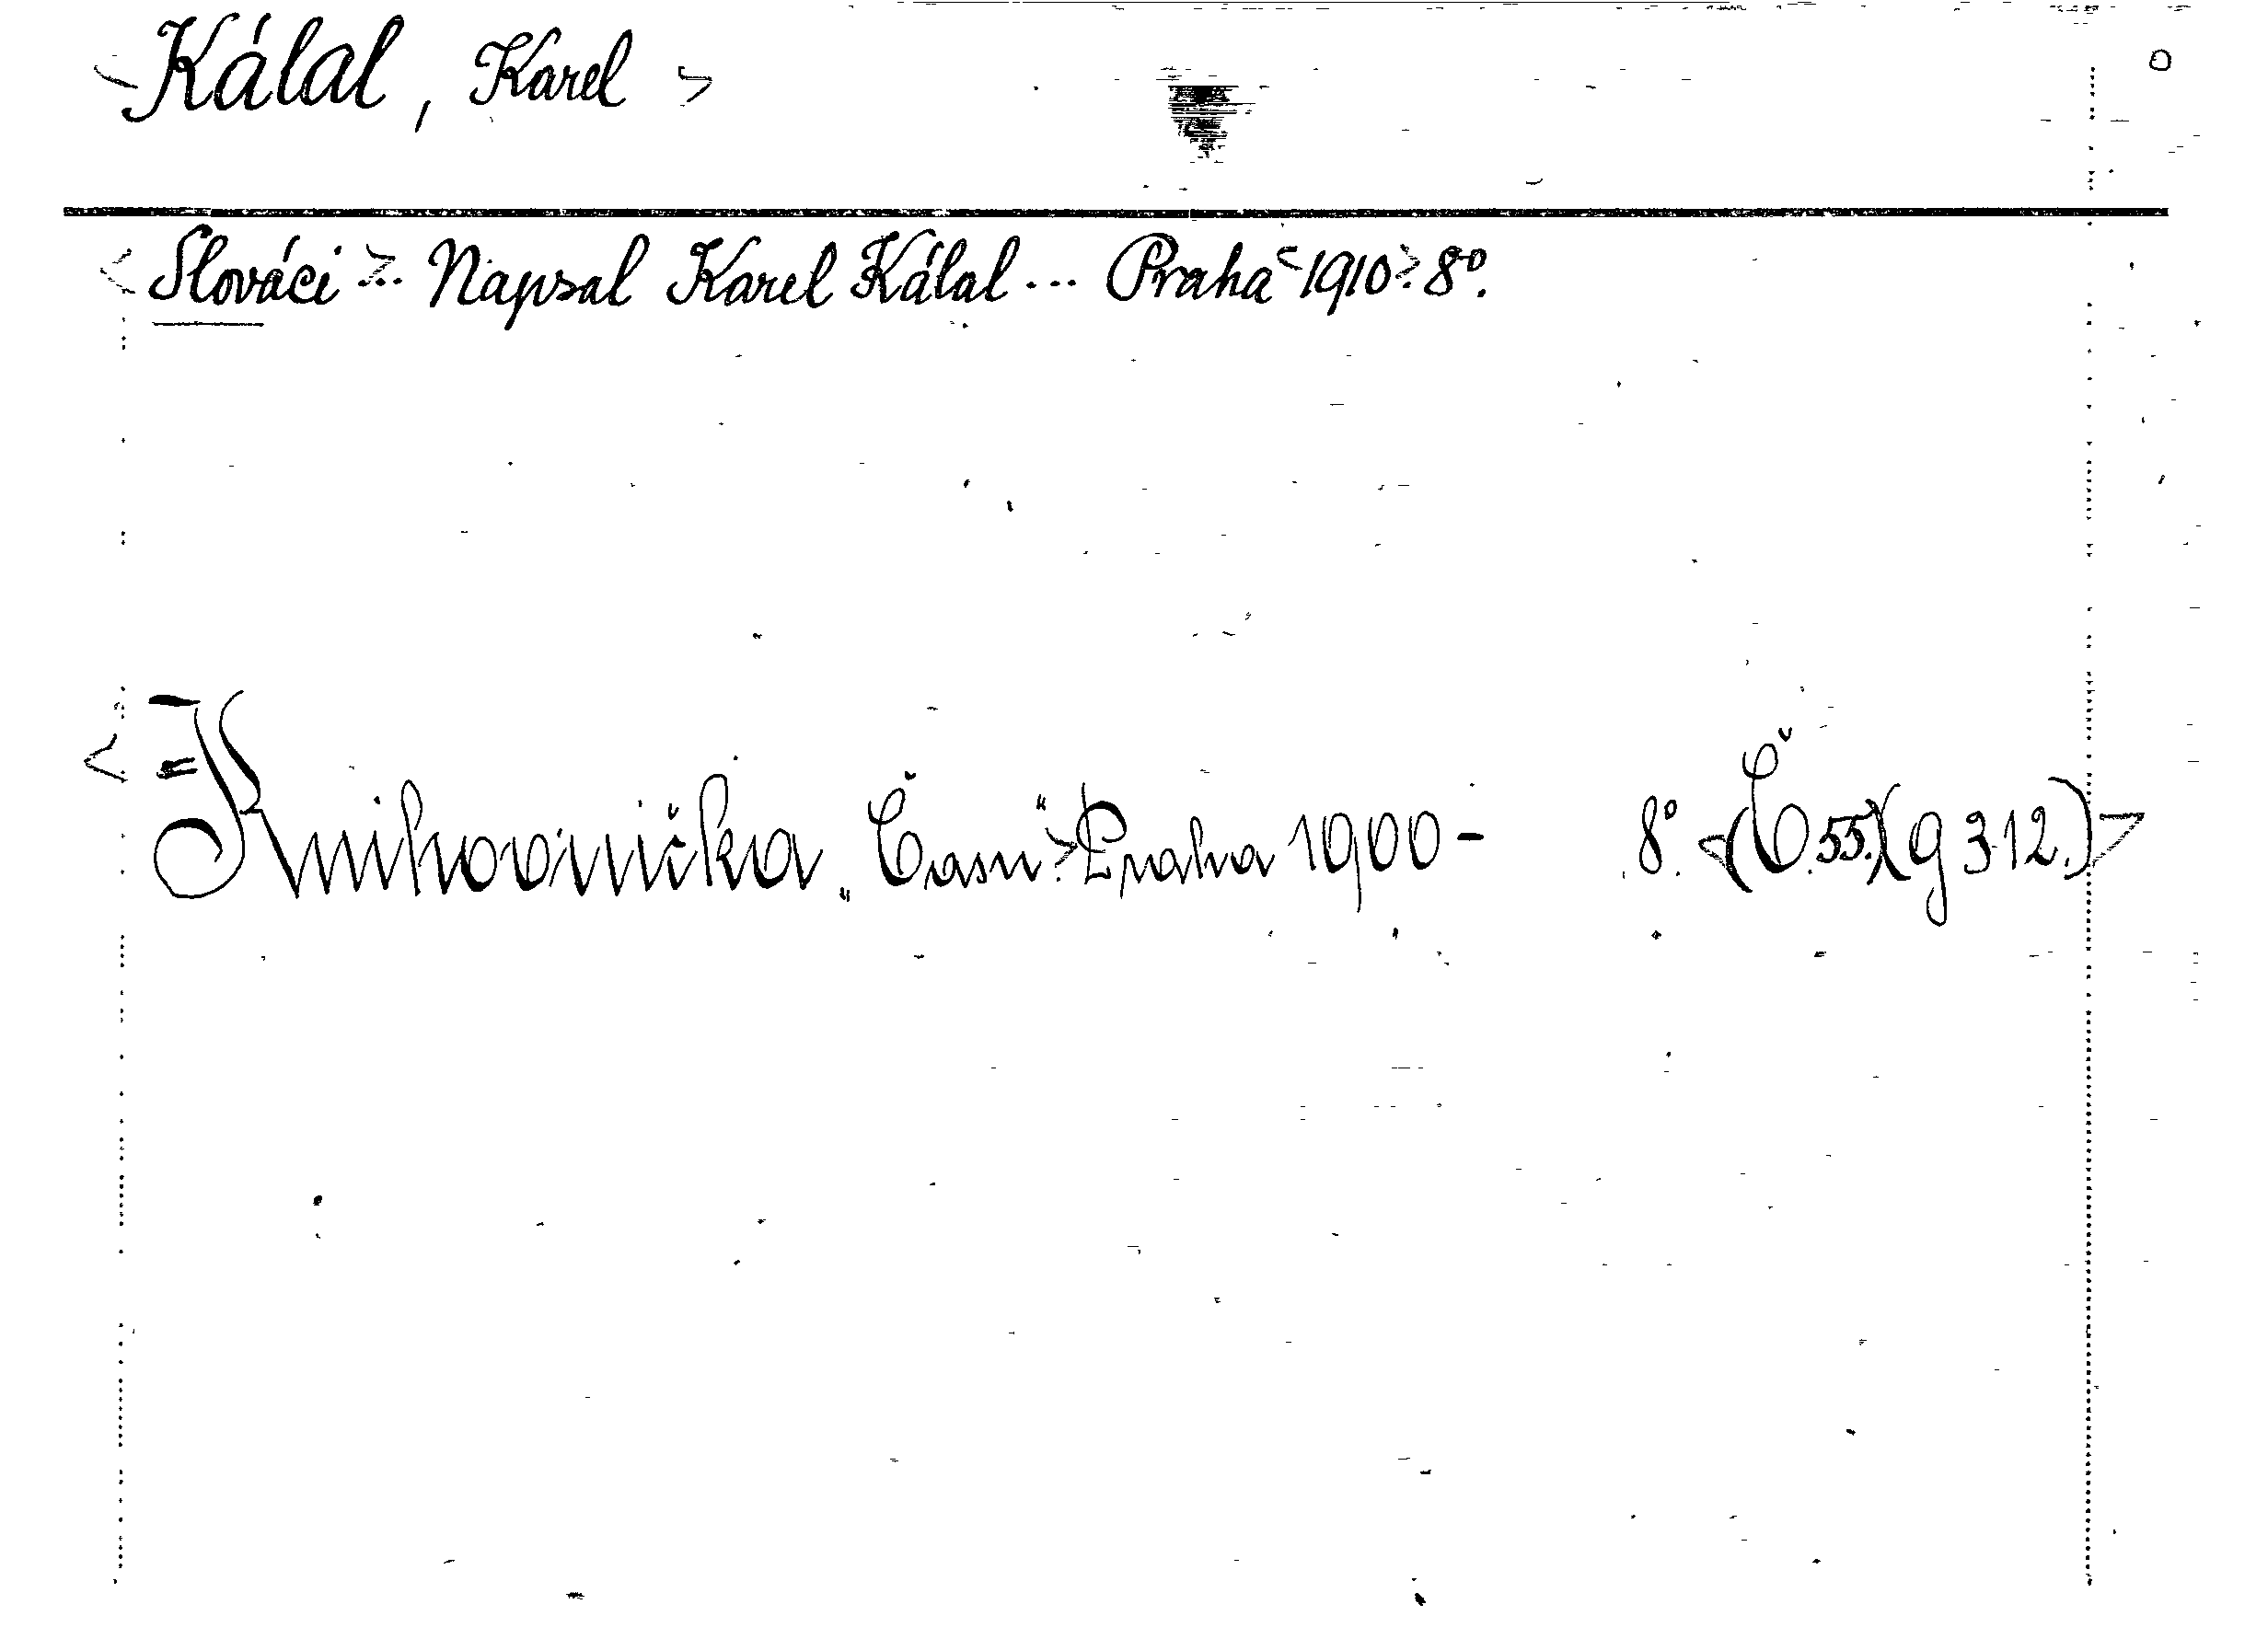 <Kálal, Karel>
<Slováci>... Napsal Karel Kálal... Praha <1910>. 8°.
<= Knihovnička „Času“>. Praha 1900- 8°. <(Č. 55.)(g 312.)>